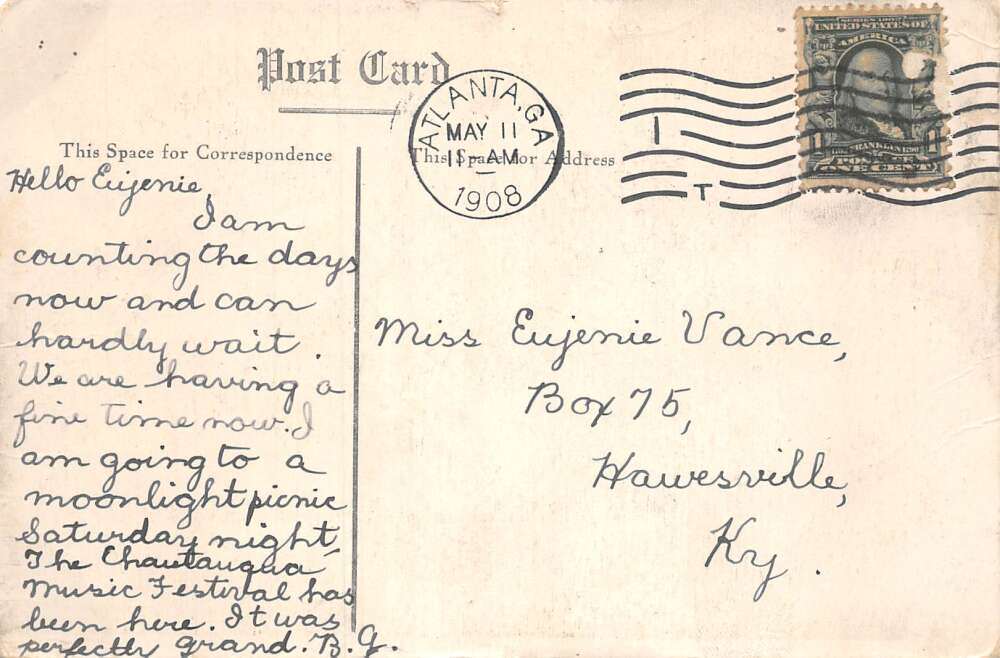 Post Card
This Space for Correspondence
This Space for Address
ATLANTA, GA
MAY 11
11-AM
1908
I
T
SERIES 1902
UNITED STATES OF
AMERICA
FRANKLIN
POSTAGE
ONE CENT
Hello Eujenie,
I am
counting the days
now and can
hardly wait.
We are having a
fine time now. I
am going to a
moonlight picnic
Saturday night,
The Chautauqua
Music Festival has
been here. It was
perfectly grand. B.G.
Miss Eujenie Vance,
Box 75,
Hawesville,
Ky.